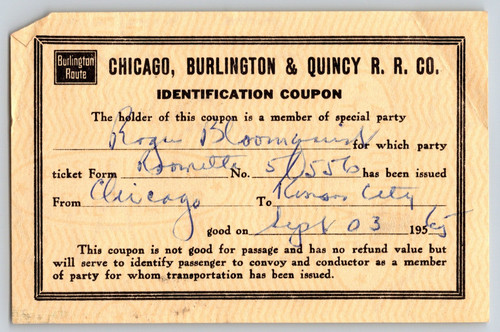 Burlington
Route
CHICAGO, BURLINGTON & QUINCY R. R. CO.
IDENTIFICATION COUPON
The holder of this coupon is a member of special party
Roger Bloomquist for which party
ticket Form Roomette No. 50556 has been issued
From Chicago To Kansas City
good on Sept 03 195
This coupon is not good for passage and has no refund value but
will serve to identify passenger to convoy and conductor as a member
of party for whom transportation has been issued.